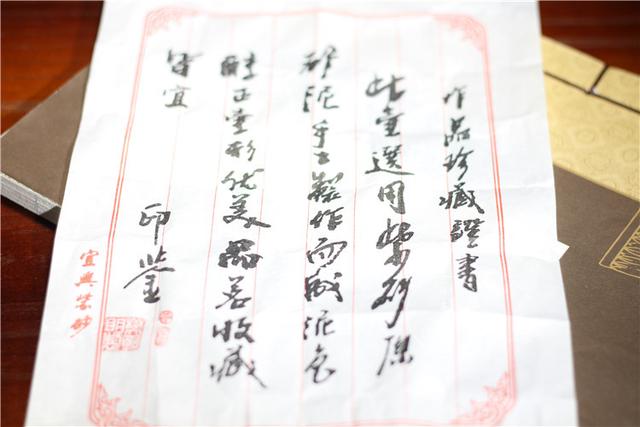 作品珍藏證書
此壶選用紫砂原
礦泥手工製作而成泥色
純正壶形优美品茗收藏
皆宜
印鉴
宜興紫砂